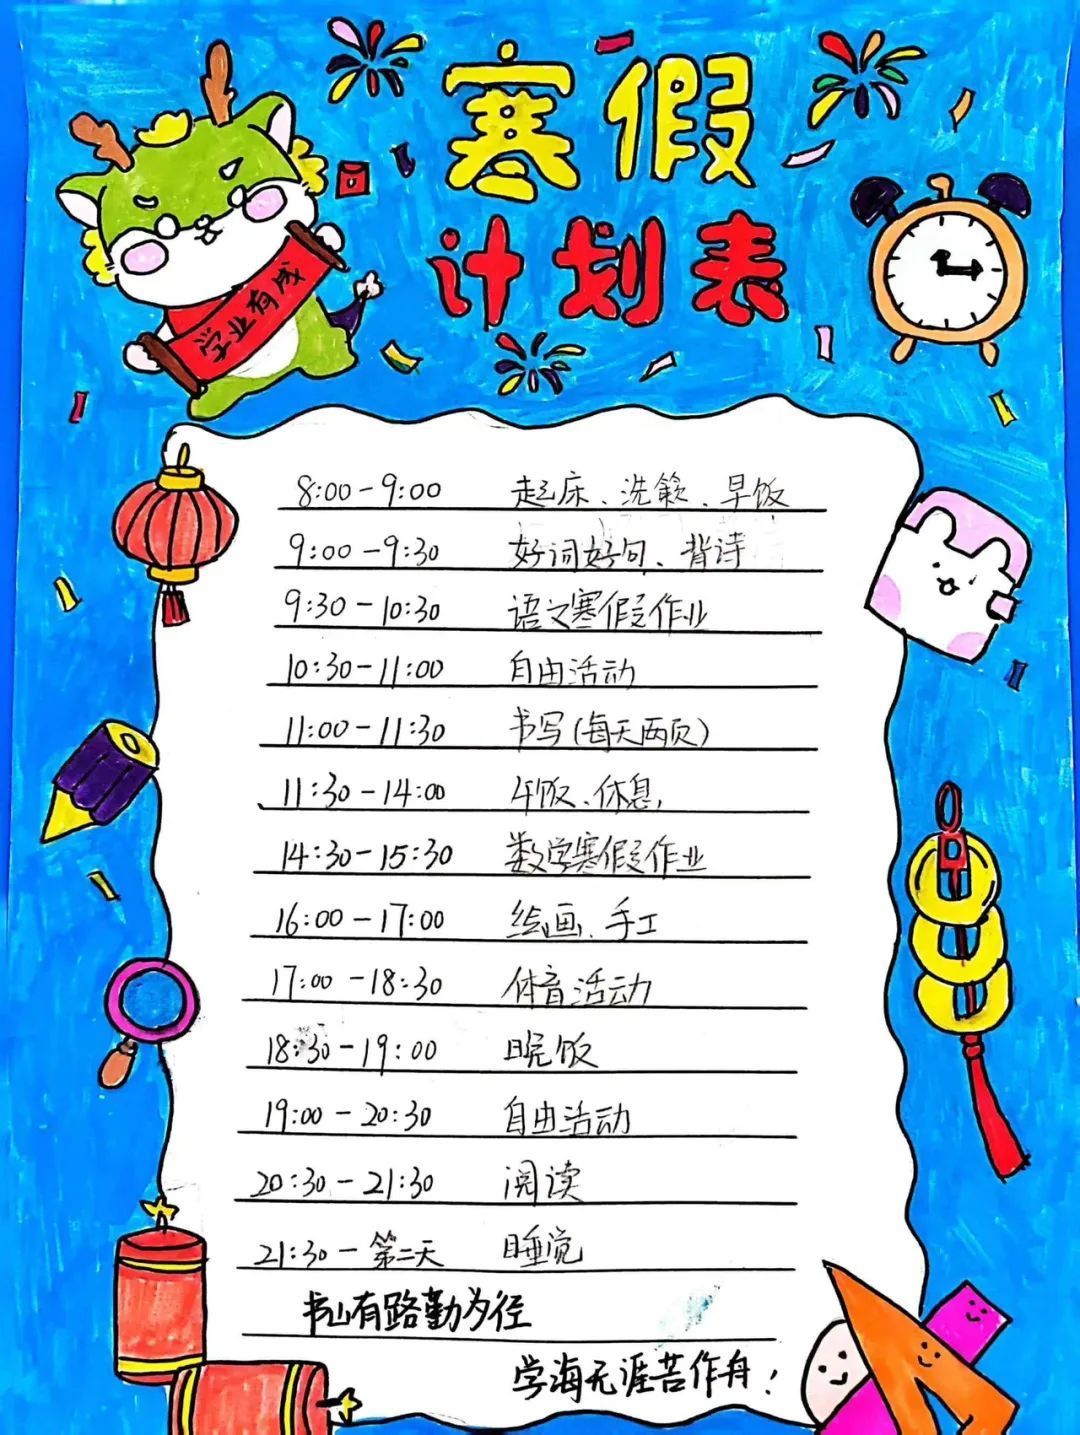 寒假
计划表
学业有成
8:00-9:00 起床、洗簌、早饭
9:00-9:30 好词好句、背诗
9:30-10:30 语文寒假作业
10:30-11:00 自由活动
11:00-11:30 书写(每天两页)
11:30-14:00 午饭、休息
14:30-15:30 数学寒假作业
16:00-17:00 绘画、手工
17:00-18:30 体育活动
18:30-19:00 晚饭
19:00-20:30 自由活动
20:30-21:30 阅读
21:30-第二天 睡觉
书山有路勤为径
学海无涯苦作舟!